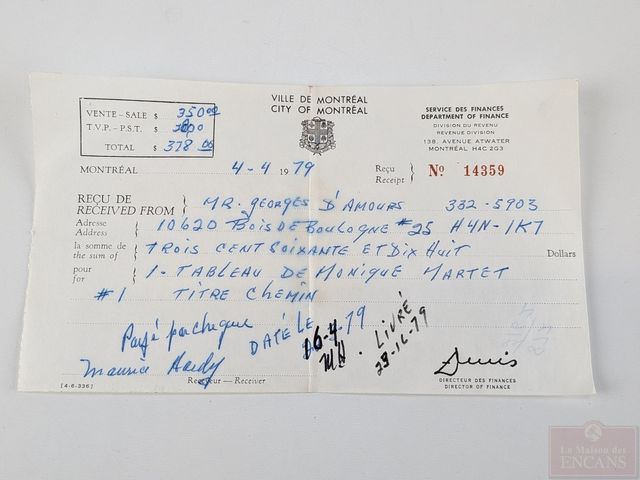 VENTE - SALE $ 350.00
T.V.P. - P.S.T. $
TOTAL $ 378.00
VILLE DE MONTRÉAL
CITY OF MONTRÉAL
SERVICE DES FINANCES
DEPARTMENT OF FINANCE
DIVISION DU REVENU
REVENUE DIVISION
138, AVENUE ATWATER
MONTRÉAL H4C 2G3
MONTRÉAL 4-4 1979
Reçu
Receipt
Nº 14359
REÇU DE
RECEIVED FROM
MR. GEORGES D'AMOURS 332-5903
Adresse
Address
10620 BOIS DE BOULOGNE #25 H4N-1K7
la somme de
the sum of
TROIS CENT SOIXANTE ET DIX HUIT Dollars
pour
for
1- TABLEAU DE MONIQUE MARTET
#1 TITRE CHEMIN
Payé par cheque DATÉ LE 16-4-79
M.H. LIVRÉ
Maurice Hardy
Receveur — Receiver
[4-6-336]
DIRECTEUR DES FINANCES
DIRECTOR OF FINANCE
La Maison des
ENCANS